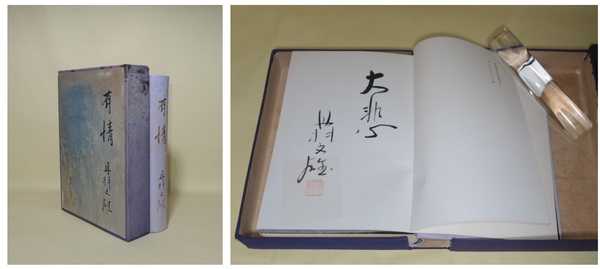 有情
丹羽文雄
有情
丹羽文雄
大悲心
丹羽文雄